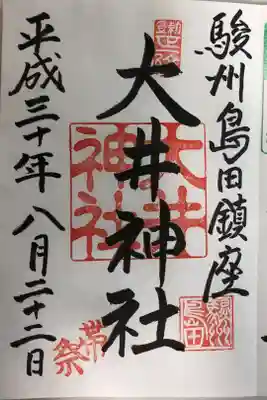 駿州島田鎮座
大井神社
平成三十年八月二十二日
大井神社
帯祭